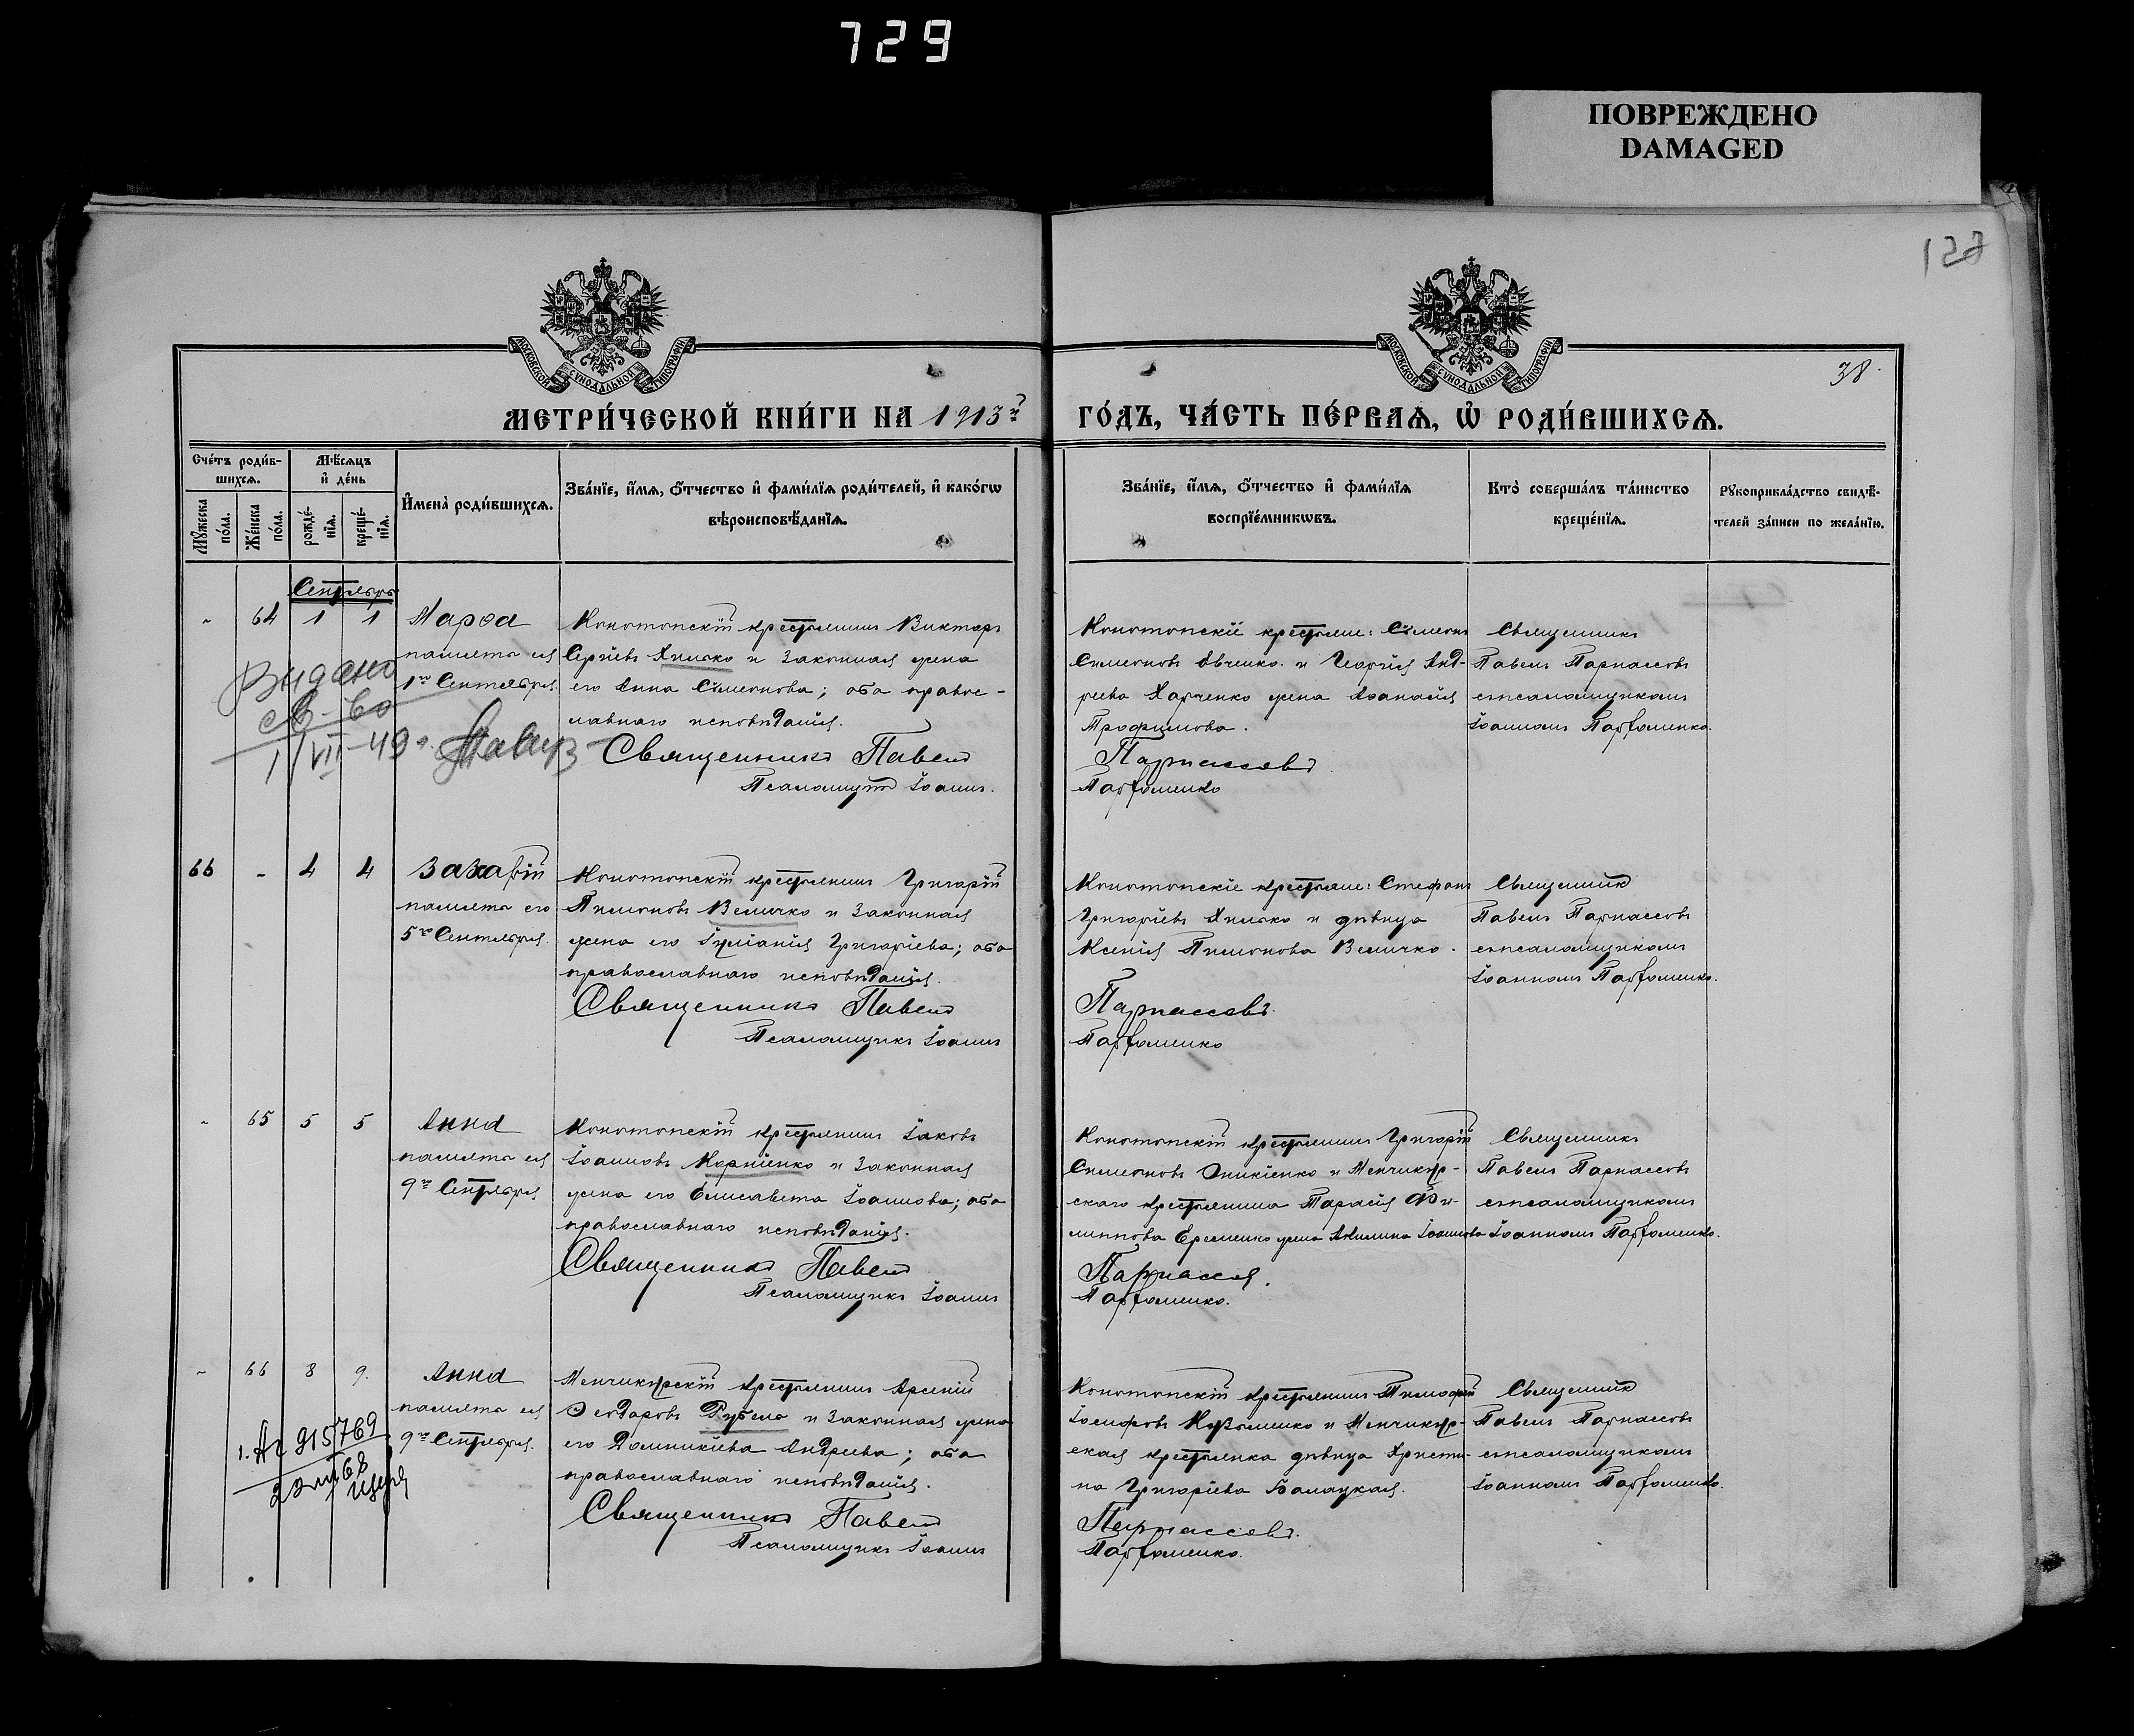 729
ПОВРЕЖДЕНО
DAMAGED
МОСКОВСКОЙ СѴНОДАЛЬНОЙ ТИПОГРАФІИ
МОСКОВСКОЙ СѴНОДАЛЬНОЙ ТИПОГРАФІИ
38.
МЕТРИ́ЧЕСКОЙ КНИ́ГИ НА 1913й ГО́ДЪ, ЧА́СТЬ ПЕ́РВАѦ, Ѡ РОДИ́ВШИХСѦ.
Сче́тъ роди́в-
шихсѧ.
Мꙋжеска по́ла.
Же́нска по́ла.
Мѣ́сѧцъ
и҆ де́нь
рожде́-
нїѧ.
креще́-
нїѧ.
И҆мена̀ роди́вшихсѧ.
Зва́нїе, и҆́мѧ, ѻ҆́тчество и҆ фами́лїѧ роди́телей, и҆ како́гѡ
вѣроисповѣ́данїѧ.
Зва́нїе, и҆́мѧ, ѻ҆́тчество и҆ фами́лїѧ
воспрїе́мникѡвъ.
Кто̀ соверша́лъ та́инство
креще́нїѧ.
Рꙋкоприкла́дство свидѣ́-
телей за́писи по жела́нїю.
Сентябрь
- 64 1 1
Марѳа
память ея
1го Сентября.
Видано
св-во
1/VII-49 г.
Конотопскій крестьянинъ Викторъ
Сергіевъ Хилько и законная жена
его Анна Сѵмеонова; оба право-
славнаго исповѣданія.
Священникъ Павелъ
Псаломщикъ Іоаннъ.
Конотопскіе крестьяне: Сѵмеонъ
Симеоновъ Овченко и Георгія Анд-
реева Харченко жена Аѳанасія
Трофимова.
Парнассовъ
Парфоменко
Священникъ
Павелъ Парнассовъ
съ псаломщикомъ
Іоанномъ Парфоменко.
66 - 4 4
Захарій
память его
5го Сентября.
Конотопскій крестьянинъ Григорій
Пимоновъ Величко и законная
жена его Іуліанія Григоріева; оба
православнаго исповѣданія.
Священникъ Павелъ
Псаломщикъ Іоаннъ
Конотопскіе крестьяне: Стефанъ
Григоріевъ Хилько и дѣвица
Ксенія Пимонова Величко.
Парнассовъ.
Парфоменко
Священникъ
Павелъ Парнассовъ
съ псаломщикомъ
Іоанномъ Парфоменко.
- 65 5 5
Анна
память ея
9го Сентября
Конотопскій крестьянинъ Іаковъ
Іоанновъ Корніенко и законная
жена его Елисавета Іоаннова; оба
православнаго исповѣданія.
Священникъ Павелъ
Псаломщикъ Іоаннъ
Конотопскій крестьянинъ Григорій
Симеоновъ Оникіенко и Менчикур-
скаго крестьянина Тарасія Фи-
липпова Еременко жена Акилина Іоаннова
Парнассовъ.
Парфоменко.
Священникъ
Павелъ Парнассовъ
съ псаломщикомъ
Іоанномъ Парфоменко.
- 66 8 9.
Анна
память ея
9го Сентября.
Менчикурскій крестьянинъ Арсеній
Ѳеодоровъ Рубель и законная жена
его Домникіева Андреева; оба
православнаго исповѣданія.
Священникъ Павелъ
Псаломщикъ Іоаннъ
Конотопскій крестьянинъ Тимофей
Іосифовъ Кузьменко и Менчикур-
ская крестьянка дѣвица Христи-
на Григоріева Балацкая.
Парнассовъ.
Парфоменко.
Священникъ
Павелъ Парнассовъ
съ псаломщикомъ
Іоанномъ Парфоменко.